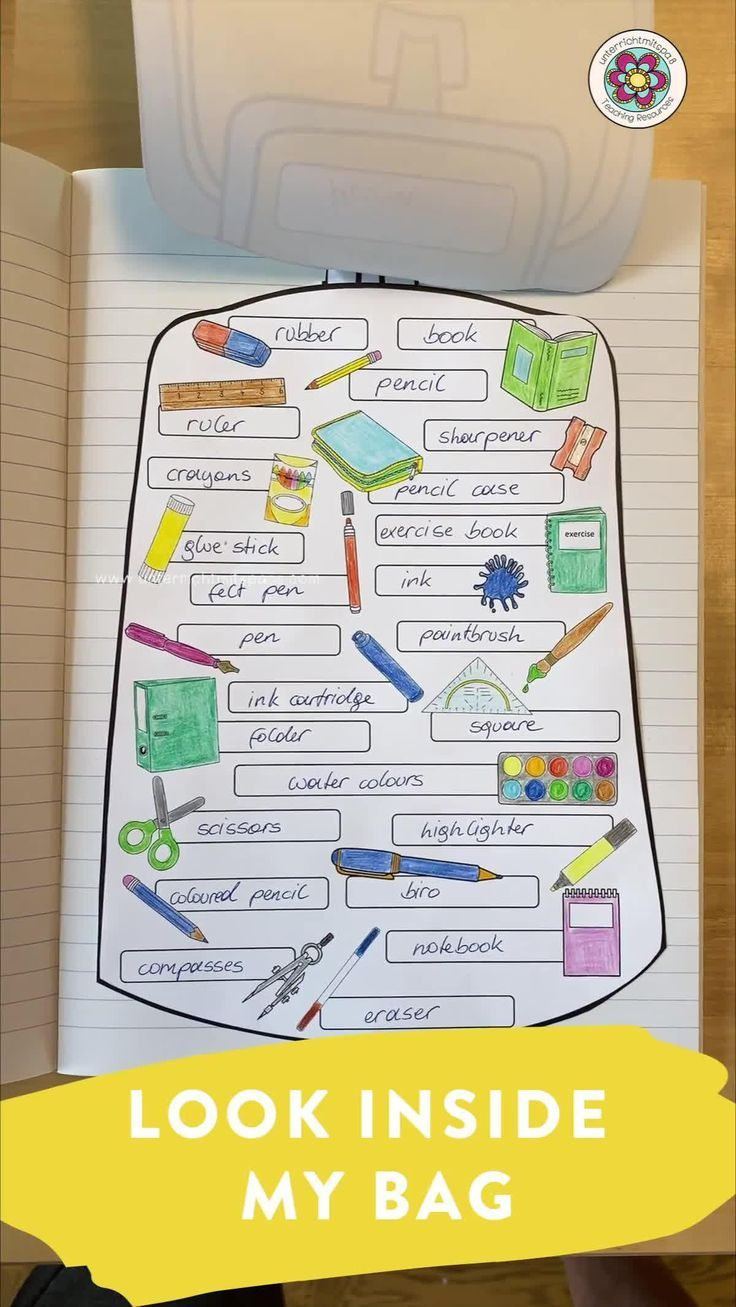 unterrichtmitspass
Teaching Resources
rubber
book
pencil
1 2 3 4 5 6
ruler
sharpener
crayons
pencil case
exercise book
exercise
glue stick
www.unterrichtmitspass.com
felt pen
ink
pen
paintbrush
ink cartridge
square
folder
water colours
scissors
highlighter
coloured pencil
biro
notebook
compasses
eraser
LOOK INSIDE
MY BAG